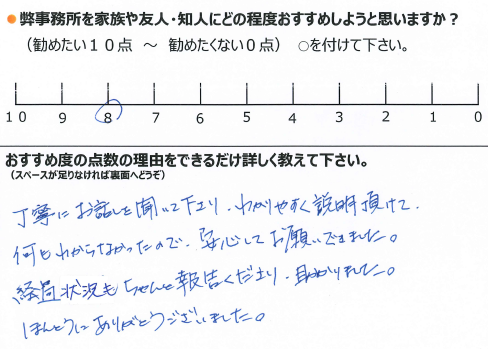 ●弊事務所を家族や友人・知人にどの程度おすすめしようと思いますか？
（勧めたい１０点　～　勧めたくない０点）　○を付けて下さい。
10 9 8 7 6 5 4 3 2 1 0
おすすめ度の点数の理由をできるだけ詳しく教えて下さい。
（スペースが足りなければ裏面へどうぞ）
丁寧にお話しを聞いて下さり、わかりやすく説明頂けて、
何もわからなかったので、安心してお願いできました。
経過状況もちゃんと報告くださり、助かりました。
ほんとうにありがとうございました。